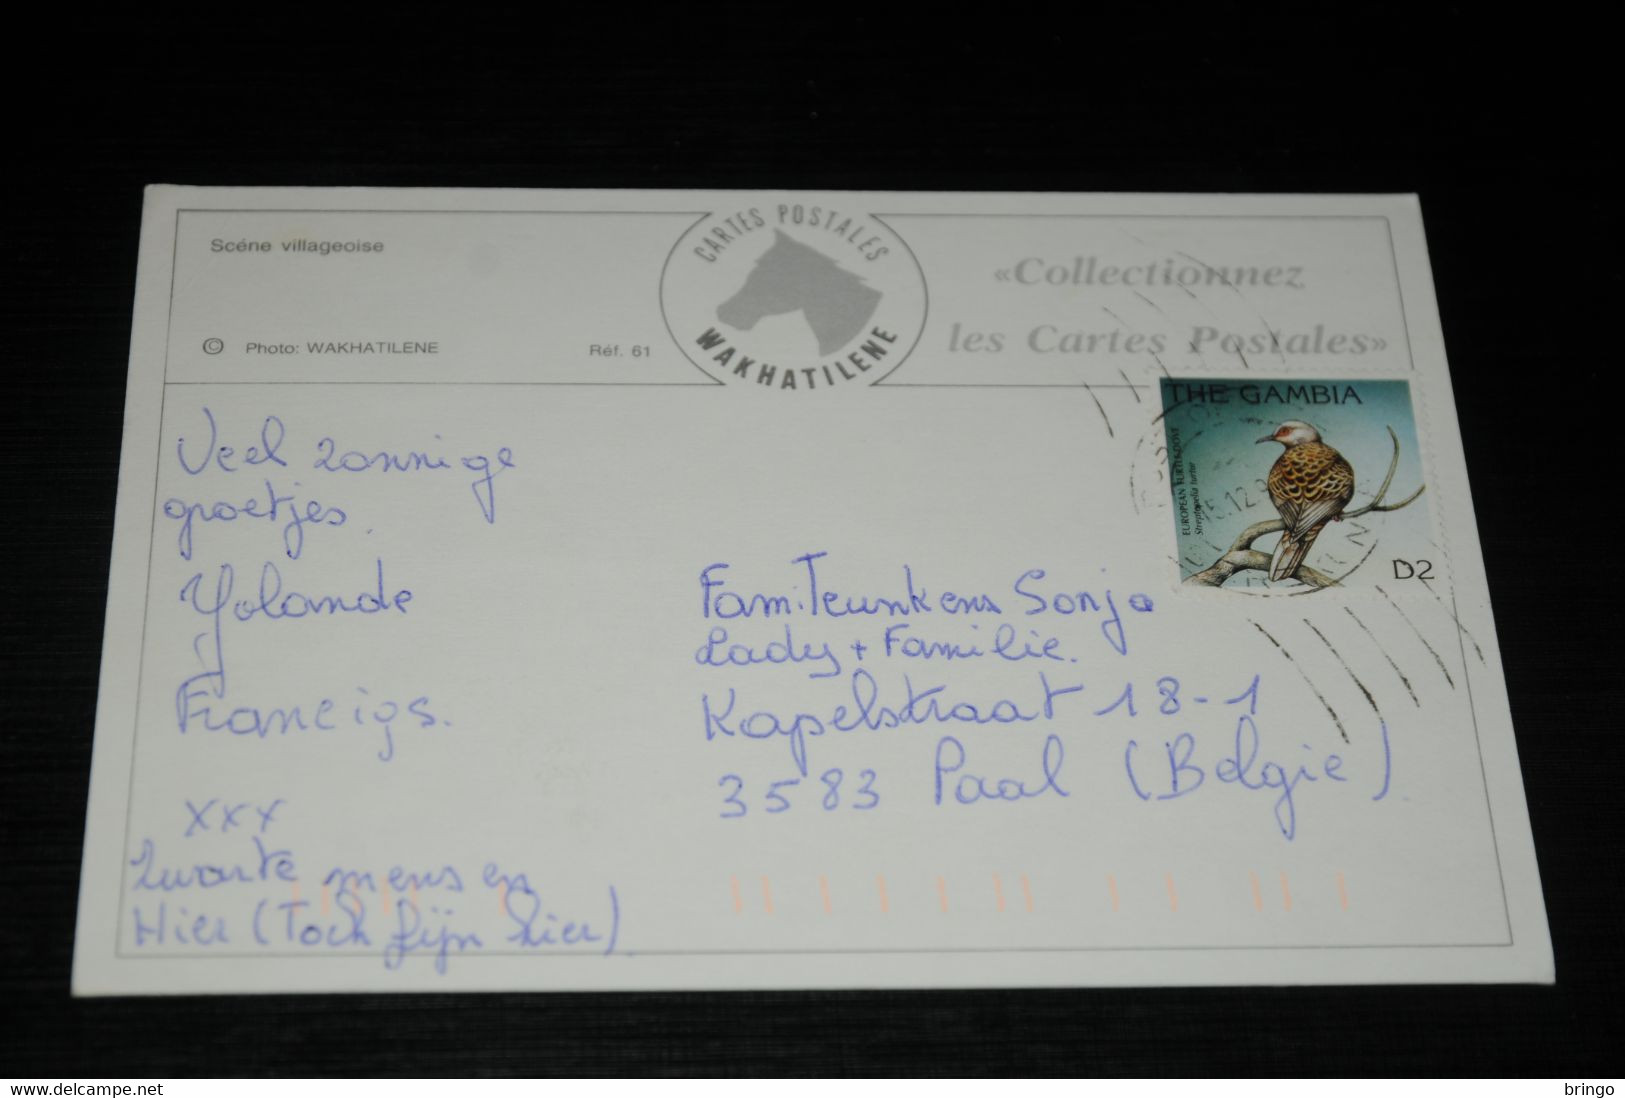 Scéne villageoise
© Photo: WAKHATILENE
Réf. 61
CARTES POSTALES
WAKHATILENE
«Collectionnez
les Cartes Postales»
THE GAMBIA
EUROPEAN TURTLE-DOVE
Streptopelia turtur
D2
Veel zonnige
groetjes.
Yolande
Fam. Teunkens Sonja
Lady + Familie.
Kapelstraat 18-1
3583 Paal (Belgie)
xxx
Zwarte mensen
Hier (Toch fijn hier)
delcampe.net
bringo